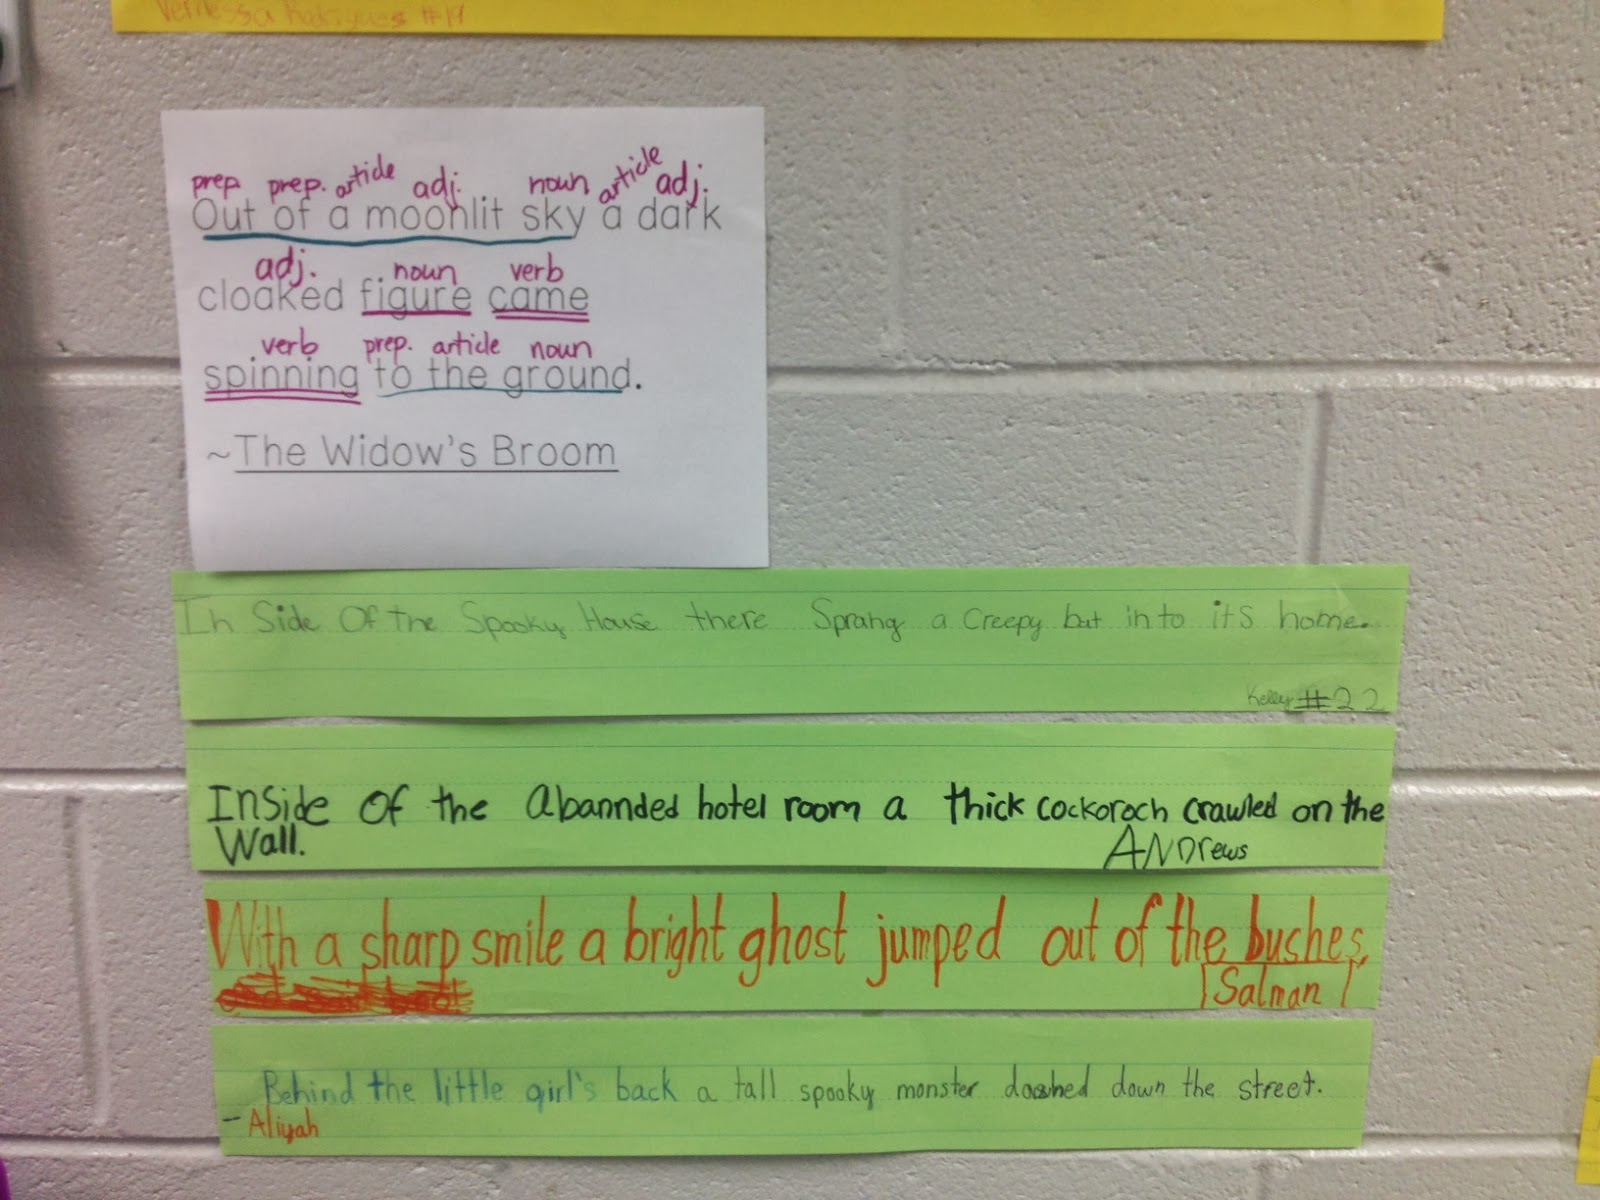 Vernessa Rodrigues #19
prep. prep. article adj. noun article adj.
Out of a moonlit sky a dark
adj. noun verb
cloaked figure came
verb prep. article noun
spinning to the ground.
~The Widow's Broom
In Side Of the Spooky House there Sprang a Creepy bat in to its home.
Kelly #22
Inside Of the abannded hotel room a thick cockoroch crawled on the
Wall.
ANDrews
With a sharp smile a bright ghost jumped out of the bushes.
Salman
Behind the little girl's back a tall spooky monster dashed down the street.
- Aliyah